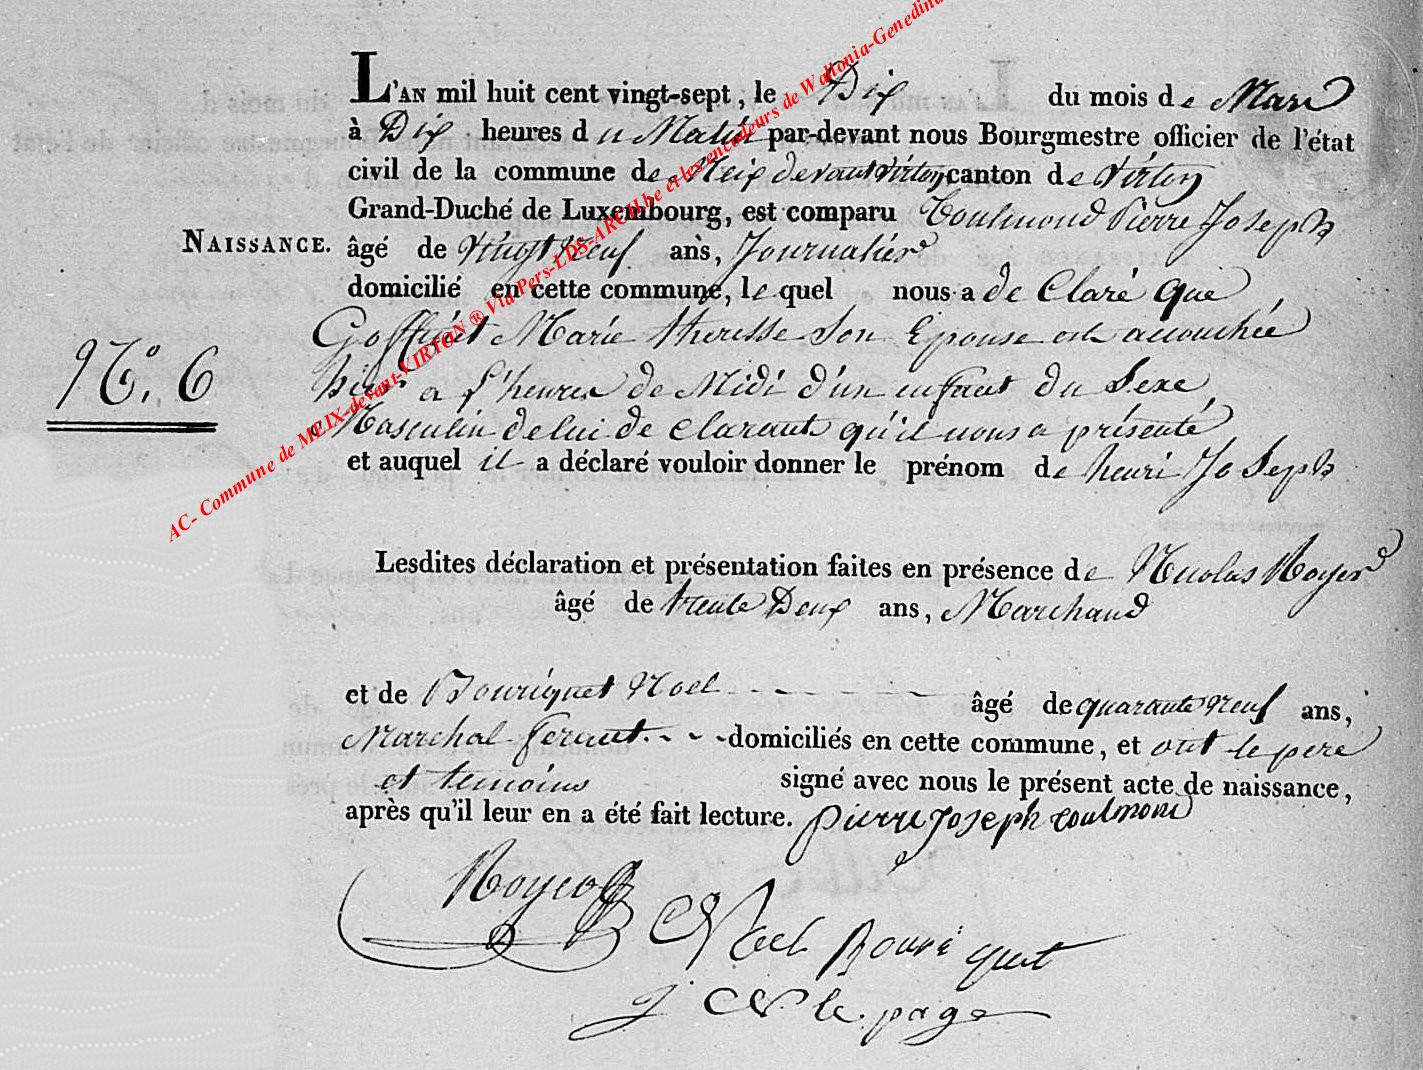 L'AN mil huit cent vingt-sept, le Dix du mois de Mars
à Dix heures du Matin par-devant nous Bourgmestre officier de l'état
civil de la commune de Meix devant Virton canton de Virton
Grand-Duché de Luxembourg, est comparu Coulmond Pierre Joseph
NAISSANCE.
âgé de Vingt neuf ans, Journalier
domicilié en cette commune, le quel nous a de Claré que
Goffinet Marie theresse Son Epouse est accouchée
N.° 6
hier a l'heures de Midi d'un enfant du Sexe
Masculin de lui de clarant qu'il nous a présenté
et auquel il a déclaré vouloir donner le prénom de henri Joseph
Lesdites déclaration et présentation faites en présence de Nicolas Royer
âgé de trente Deux ans, Marchand
et de Bouriquet Noel âgé de quarante neuf ans,
Marchal ferrant domiciliés en cette commune, et ont le pere
et temoins signé avec nous le présent acte de naissance,
après qu'il leur en a été fait lecture. pierre Joseph coulmont
Royer
Noel Bouriquet
J N lepage
AC- Commune de MEIX-devant-VIRTON ® Via Pers-LDS-ARCH.be et les encodeurs de Wallonia-Genedina